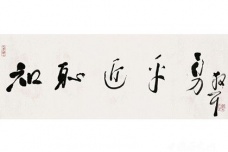 知耻近乎勇